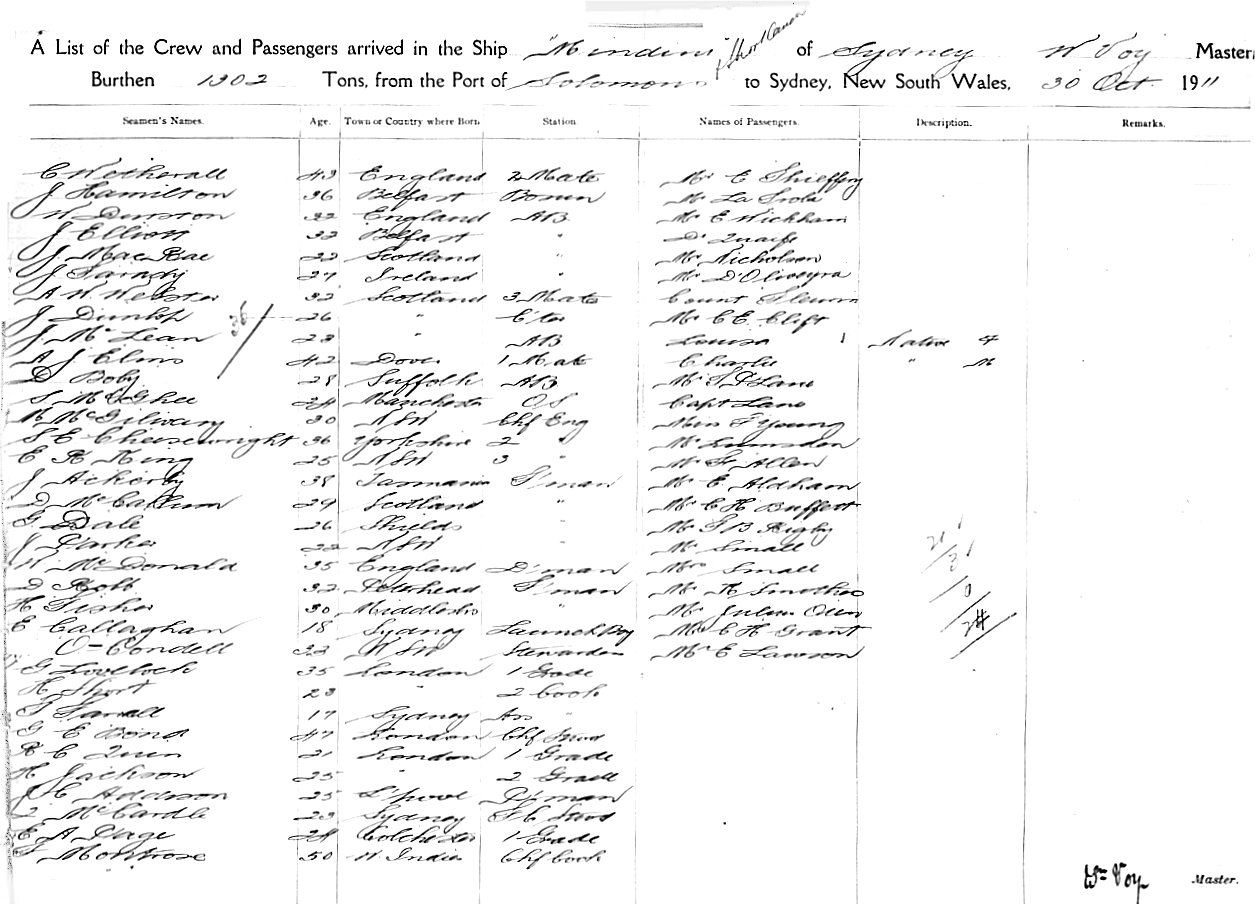 A List of the Crew and Passengers arrived in the Ship "Mindini" of Sydney W Voy Master
Burthen 1302 Tons, from the Port of Solomons to Sydney, New South Wales, 30 Oct. 1911
Seamen's Names. Age. Town or Country where Born Station Names of Passengers. Description. Remarks.
C Wetherall 43 England 2 Mate Mr E
J Hamilton 36 Belfast Bosun Mr La
W Durston 32 England AB Mr E Wickham
J Elliott 32 Belfast " Dr Quaife
J MacRae 22 Scotland " Mr Nicholson
J 27 Ireland " Mr D'Oliveyra
A W Webster 32 Scotland 3 Mate Count
J Dunlop 26 " C'ter Mr C E Clift
J McLean 23 " AB Louisa 1 Native F
A J Elms 42 Dover 1 Mate Charlie " M
D Boby 28 Suffolk AB Mr Lane
S McGhee 24 Manchester OS Capt Lane
30 NSW Chf Eng Miss F Young
S E Cheesewright 36 Yorkshire 2 " Mr Lumsden
E R King 25 NSW 3 " Mr Allen
J Ackerby 38 Tasmania F'man Mr E Aldham
D McCallum 29 Scotland " Mr C H Buffett
G Dale 26 Shields " Mr B Rigby
J Parker 22 NSW " Mr Small
W McDonald 35 England D'man Mrs Small
D Robb 32 Peterhead F'man Mr
H Fisher 30 Middlesbro " Mr Julius Oien
E Callaghan 18 Sydney Launch Boy Mr C H Grant
O-Condell 32 NSW Stewardess Mr E Lawson
G Lovelock 35 London 1 Grade
H Short 23 " 2 Cook
Farrell 17 Sydney Ass "
G E Bond 47 London Chf Stwd
R C Quin 21 London 1 Grade
H Jackson 25 " 2 Grade
J C Addison 25 L'pool P'man
McCardle 23 Sydney F C Stwd
E A Page 24 Colchester 1 Grade
F Montrose 50 W. Indies Chf Cook
Wm Voy Master.